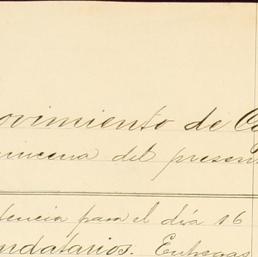 ovimiento de Ca
uincena del presen
tencia para el día 16
ndatarios. Entregas